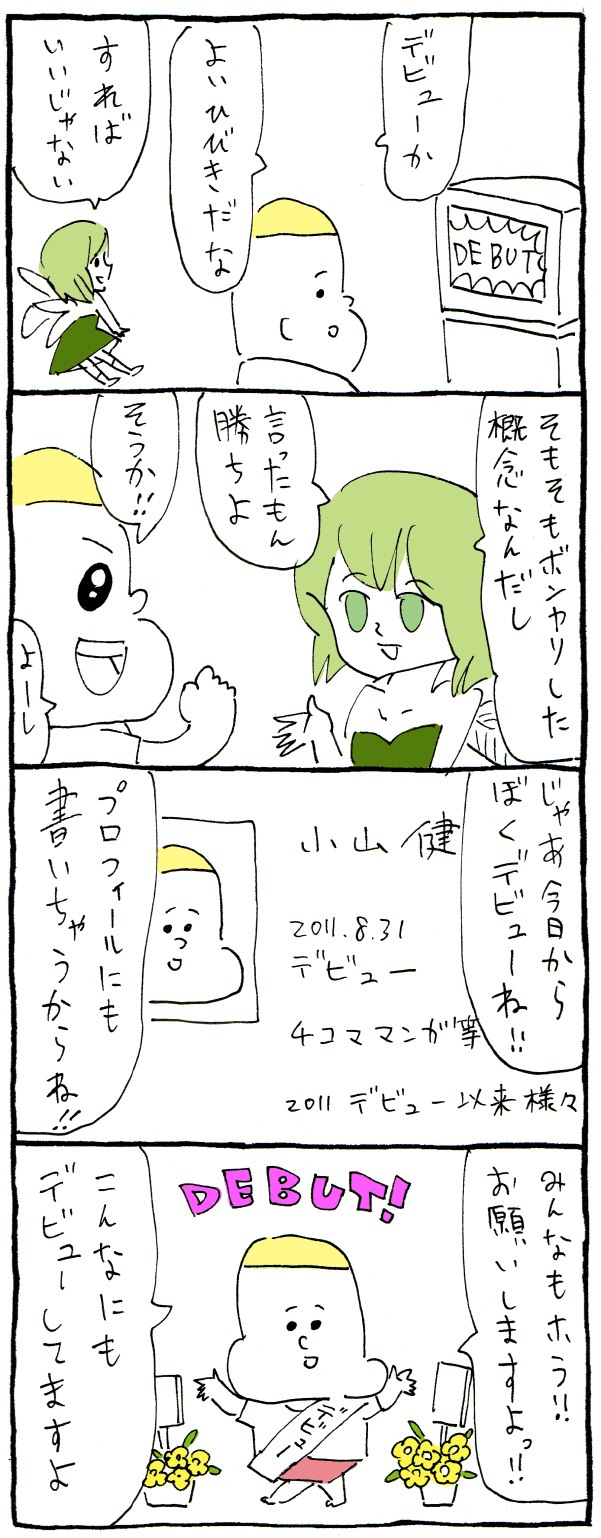 デビューか
DEBUT
よいひびきだな
すれば
いいじゃない
そもそもボンヤリした
概念なんだし
言ったもん
勝ちよ
そうか!!
よーし
じゃあ今日から
ぼくデビューね!!
小山健
2011.8.31
デビュー
4コママンガ等
2011 デビュー以来様々
プロフィールにも
書いちゃうからね!!
みんなもホラ!!
お願いしますよっ!!
DEBUT!
デビュー
こんなにも
デビューしてますよ